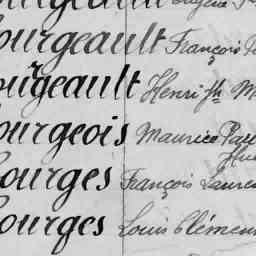 ourgeault François
ourgeault Henri Jh M
ourgeois Maurice Paul
Hu
ourges François Lauren
ourges Louis Clémen